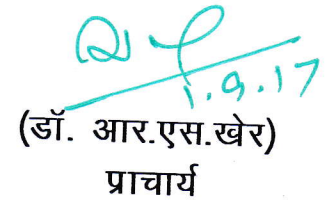 1.9.17
(डॉ. आर.एस.खेर)
प्राचार्य